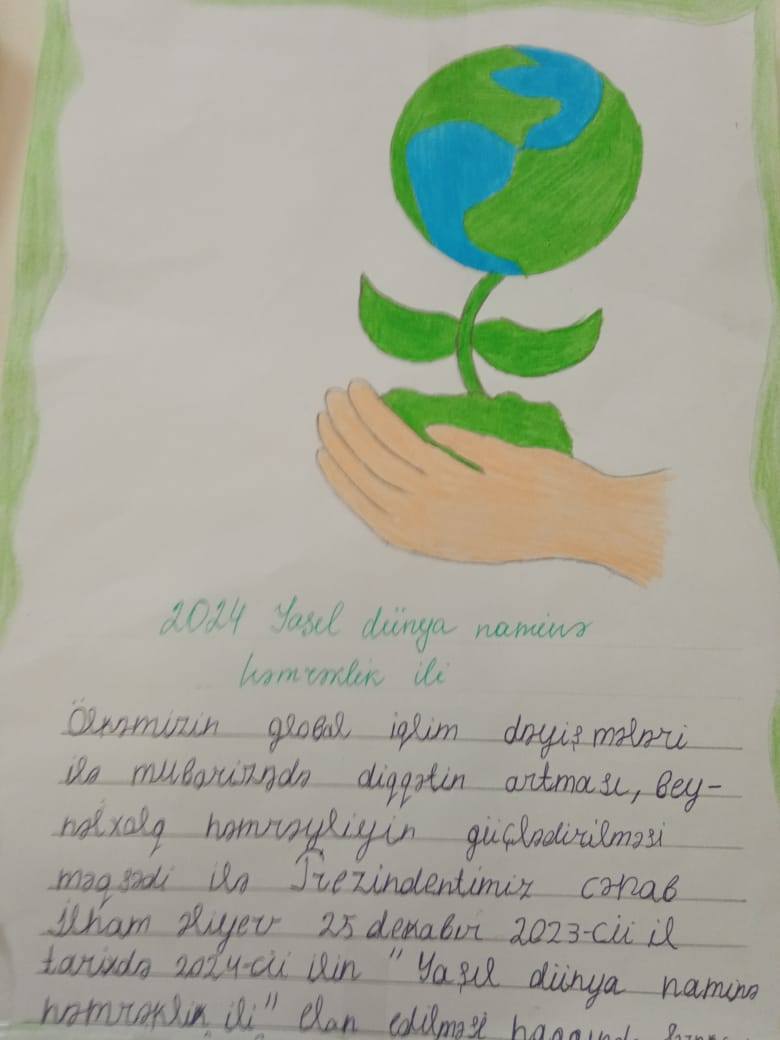 2024 Yaşıl dünya naminə
həmrəylik ili
Ölkəmizin qlobal iqlim dəyişmələri
ilə mubarizədə diqqətin artması, bey-
nəlxalq həmrəyliyin güclədirilməsi
məqsədi ilə Prezindentimiz cənab
İlham Əliyev 25 dekabr 2023-cü il
tarixdə 2024-cü ilin "Yaşıl dünya naminə
həmrəylik ili" elan edilməsi haqqında